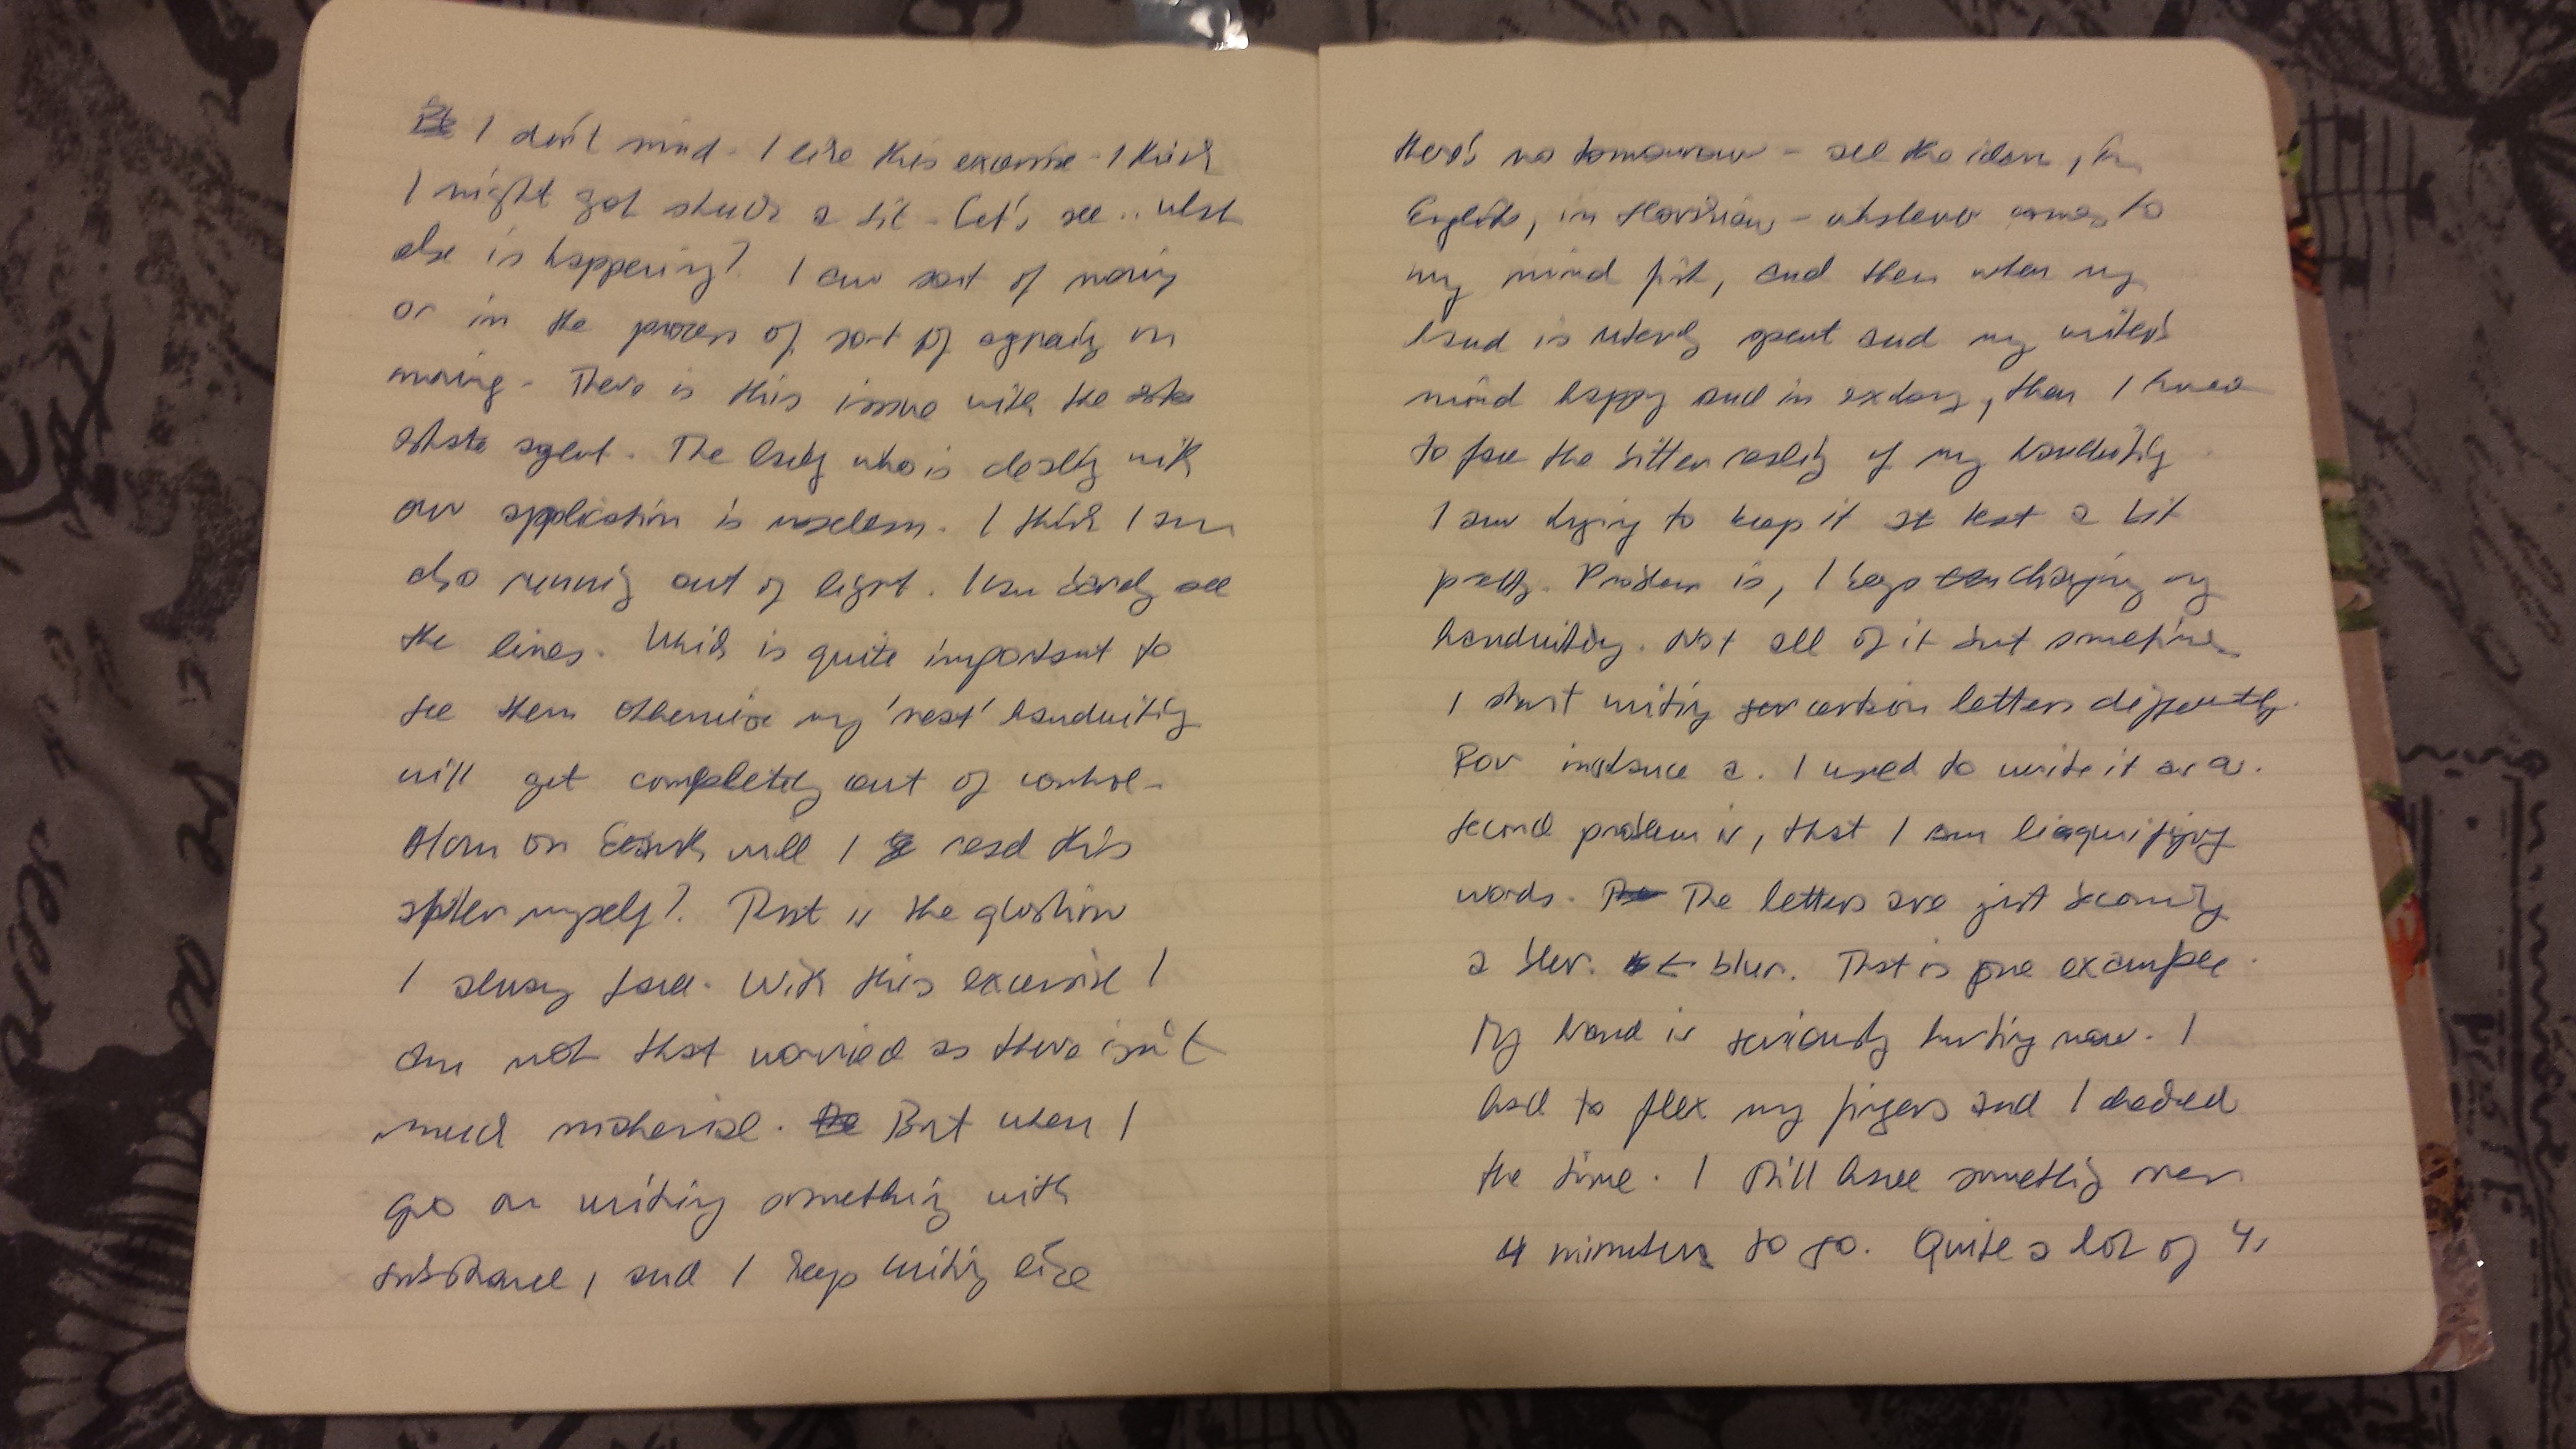 I don't mind. I like this exercise. I think
I might get stuck a bit. Let's see .. what
else is happening? I am sort of moving
or in the process of sort of agreeing on
moving. There is this issue with the
estate agent. The lady who is dealing with
our application is useless. I think I am
also running out of light. I can barely see
the lines. Which is quite important to
see them otherwise my 'neat' handwriting
will get completely out of control.
How on Earth will I read this
after myself? That is the question
I always face. With this excersise I
am not that worried as there isn't
much material. But when I
go on writing something with
substance, and I keep writing like
there's no tomorrow - all the ideas, in
English, in Slovakian - whatever comes to
my mind first, and then when my
hand is utterly spent and my writer's
mind happy and in extasy, then I have
to face the bitter reality of my handwriting.
I am trying to keep it at least a bit
pretty. Problem is, I keep changing my
handwriting. Not all of it but sometimes
I start writing certain letters differently.
For instance a. I used to write it as a.
Second problem is, that I am liaquifying
words. The letters are just becoming
a bler. ← blur. That is one example.
My hand is seriously hurting now. I
had to flex my fingers and I checked
the time. I still have something over
4 minutes to go. Quite a lot of 4,